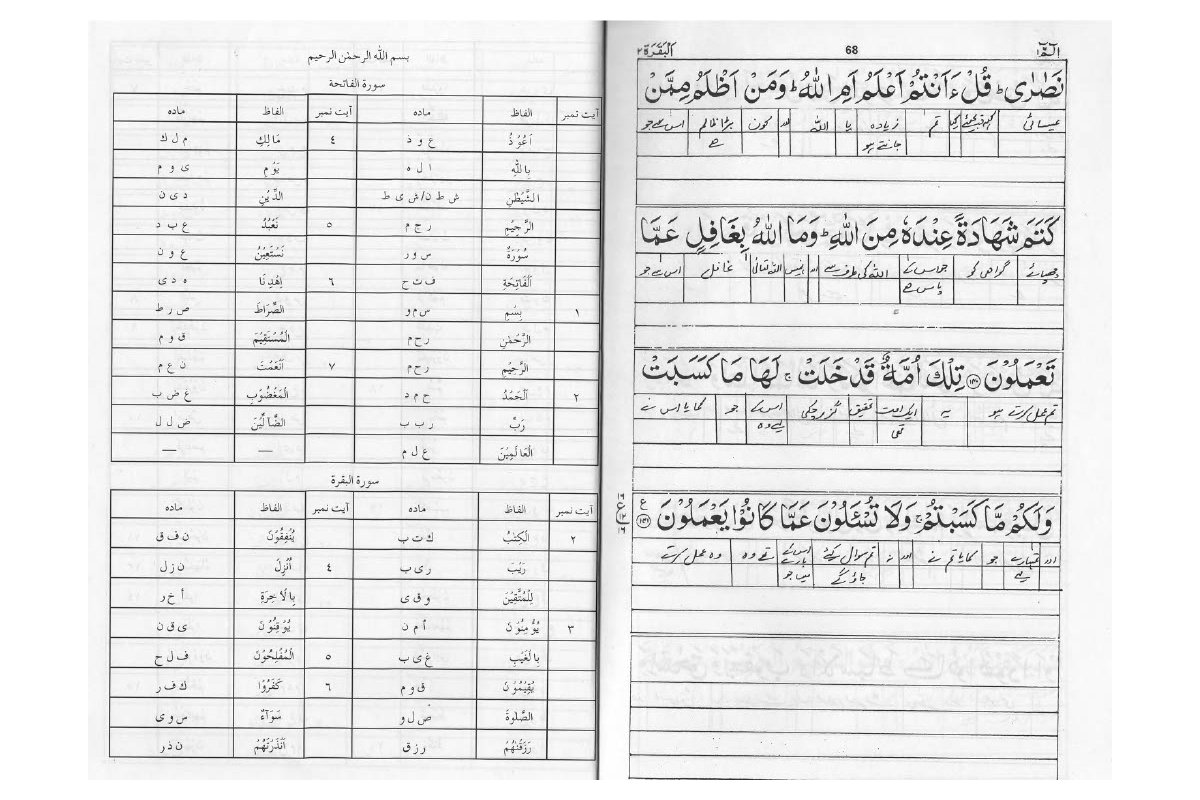 الٓمّٓ ١
68
البقرة ٢
نَصٰرٰى ؕ قُلْ ءَاَنْتُمْ اَعْلَمُ اَمِ اللّٰهُ ؕ وَمَنْ اَظْلَمُ مِمَّنْ
عیسائی کیا تم زیادہ یا اللہ اور کون بڑا ظالم اس سے جو
جانتے ہو ہے
كَتَمَ شَهَادَةً عِنْدَهٗ مِنَ اللّٰهِ ؕ وَمَا اللّٰهُ بِغَافِلٍ عَمَّا
چھپائے گواہی کو جو اس کے اللہ کی طرف سے اور نہیں اللہ تعالیٰ غافل اس سے جو
پاس ہے
تَعْمَلُوْنَ ﴿۱۴۰﴾ تِلْكَ اُمَّةٌ قَدْ خَلَتْ ۚ لَهَا مَا كَسَبَتْ
تم عمل کرتے ہو یہ ایک امت تحقیق گزر چکی اس کے جو کمایا اس نے
تھی لیے وہ
وَلَكُمْ مَّا كَسَبْتُمْ ۚ وَلَا تُسْـَٔلُوْنَ عَمَّا كَانُوْا يَعْمَلُوْنَ ﴿۱۴۱﴾
اور تمہارے جو کمایا تم نے اور نہ تم سوال کئے اس کے تھے وہ وہ عمل کرتے
لیے جاؤ گے بارے میں جو
بسم الله الرحمٰن الرحیم
سورة الفاتحة
آیت نمبر الفاظ ماده آیت نمبر الفاظ ماده
اَعُوْذُ ع و ذ ٤ مَالِكِ م ل ك
بِاللّٰهِ ا ل ه يَوْمِ ى و م
الشَّيْطٰنِ ش ط ن/ش ى ط الدِّيْنِ د ى ن
الرَّجِيْمِ ر ج م ٥ نَعْبُدُ ع ب د
سُوْرَةُ س و ر نَسْتَعِيْنُ ع و ن
اَلْفَاتِحَةِ ف ت ح ٦ اِهْدِنَا ه د ى
١ بِسْمِ س م و الصِّرَاطَ ص ر ط
الرَّحْمٰنِ ر ح م الْمُسْتَقِيْمَ ق و م
الرَّحِيْمِ ر ح م ٧ اَنْعَمْتَ ن ع م
٢ اَلْحَمْدُ ح م د الْمَغْضُوْبِ غ ض ب
رَبِّ ر ب ب الضَّآلِّيْنَ ض ل ل
الْعَالَمِيْنَ ع ل م — —
سورة البقرة
آیت نمبر الفاظ ماده آیت نمبر الفاظ ماده
٢ الْكِتٰبُ ك ت ب يُنْفِقُوْنَ ن ف ق
رَيْبَ ر ى ب ٤ اُنْزِلَ ن ز ل
لِلْمُتَّقِيْنَ و ق ى بِالْاٰخِرَةِ أ خ ر
٣ يُؤْمِنُوْنَ أ م ن يُوْقِنُوْنَ ى ق ن
بِالْغَيْبِ غ ى ب ٥ الْمُفْلِحُوْنَ ف ل ح
يُقِيْمُوْنَ ق و م ٦ كَفَرُوْا ك ف ر
الصَّلٰوةَ ص ل و سَوَآءٌ س و ى
رَزَقْنٰهُمْ ر ز ق اَنْذَرْتَهُمْ ن ذ ر